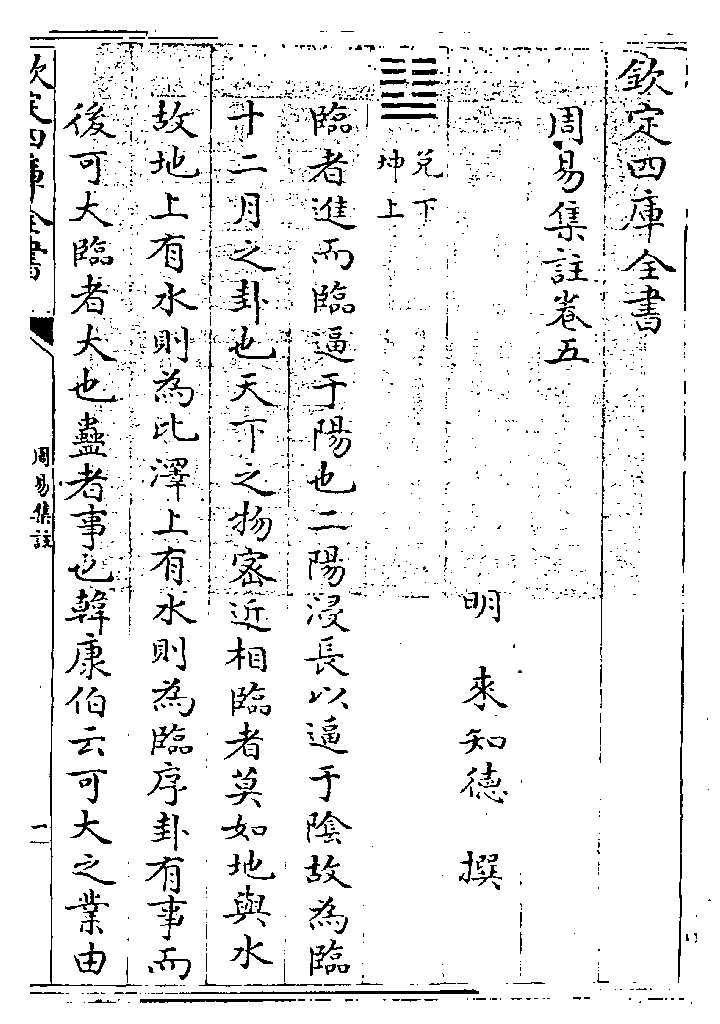 欽定四庫全書
周易集註卷五
明 來知德 撰
䷒
兌下
坤上
臨者進而臨逼于陽也二陽浸長以逼于陰故為臨
十二月之卦也天下之物密近相臨者莫如地與水
故地上有水則為比澤上有水則為臨序卦有事而
後可大臨者大也蠱者事也韓康伯云可大之業由
欽定四庫全書
周易集註
一